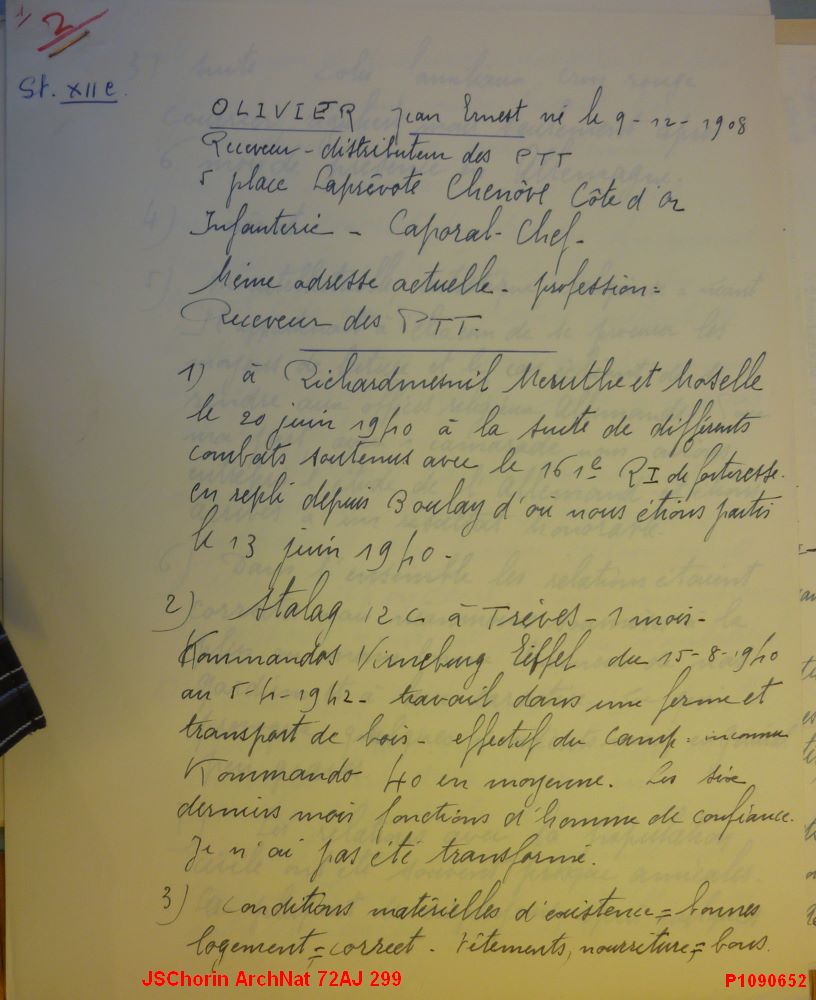 1/ 2
St. XII C.
OLIVIER Jean Ernest né le 9-12-1908
Receveur-distributeur des PTT
5 place Laprévote Chenôve Côte d'or
Infanterie - Caporal-Chef-
Même adresse actuelle - profession =
Receveur des PTT.
1) à Richardmesnil Meruthe et Moselle
le 20 juin 1940 à la suite de différents
combats soutenus avec le 161e RI de forteresse.
en repli depuis Boulay d'où nous étions partis
le 13 juin 1940-
2) Stalag 12 C à Trèves - 1 mois-
Kommandos Virneburg Eiffel du 15-8-1940
au 5-4-1942- travail dans une ferme et
transport de bois - effectif du camp = inconnu
Kommando 40 en moyenne. Les six
derniers mois fonctions d'homme de confiance.
Je n'ai pas été transformé.
3) conditions matérielles d'existence = bonnes
logement = correct - Vêtements, nourriture = bons.
JSChorin ArchNat 72AJ 299
P1090652